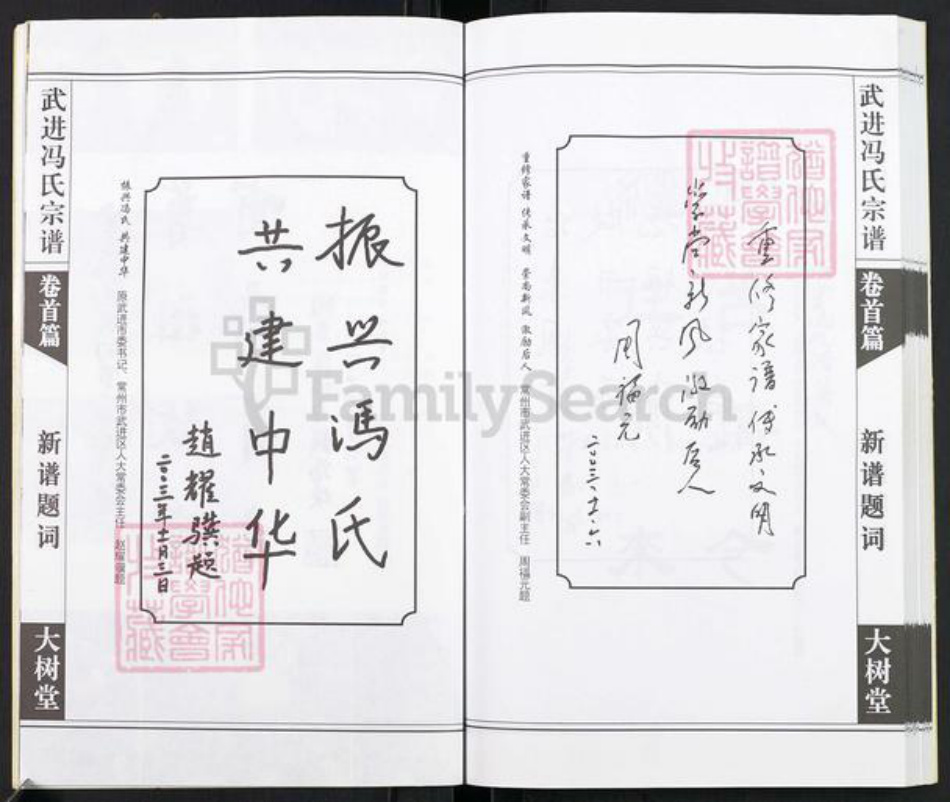 武进冯氏宗谱
卷首篇
新谱题词
大树堂
重修家谱传承文明
崇尚新风激励后人
周福元
二〇〇三、十一、六
重修家谱 传承文明 崇尚新风 激励后人 常州市武进区人大常委会副主任 周福元题
振兴冯氏
共建中华
趙耀骥题
二〇〇三年十一月三日
振兴冯氏 共建中华 原武进市委书记、常州市武进区人大常委会主任 赵耀骥题
武进冯氏宗谱
卷首篇
新谱题词
大树堂
FamilySearch